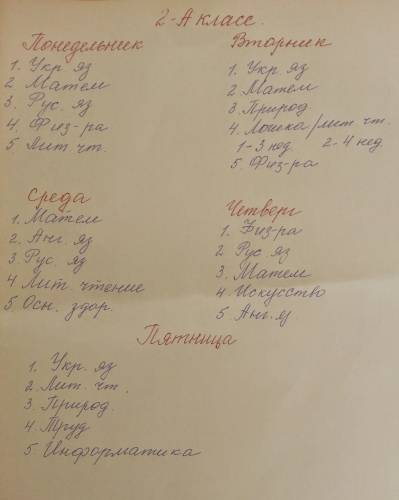 2-А класс.
Понедельник
1. Укр. яз
2. Матем
3. Рус. яз
4. Физ-ра
5. Лит. чт.
Вторник
1. Укр. яз
2. Матем
3. Природ.
4. Логика/лит. чт.
1-3 нед. 2-4 нед.
5. Физ-ра
Среда
1. Матем
2. Анг. яз
3. Рус. яз
4. Лит. чтение
5. Осн. здор.
Четверг
1. Физ-ра
2. Рус. яз
3. Матем
4. Искусство
5. Анг. яз.
Пятница
1. Укр. яз
2. Лит. чт.
3. Природ.
4. Труд
5. Информатика